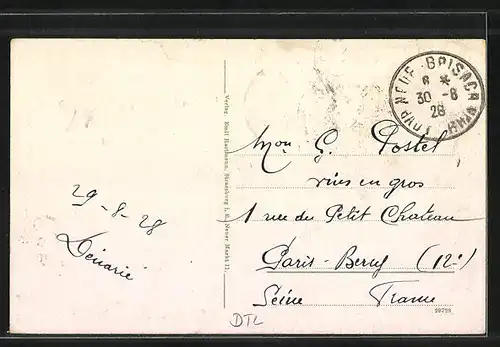 NEUF-BRISACH
6 *
30 -8
28
HAUT-RHIN
Mon G. Postel
vins en gros
1 rue du Petit Chateau
Paris-Bercy (12e)
Seine France
29-8-28
Dénarié
Verlag Emil Hartmann, Strassburg i. E., Neuer Markt 11.
DTL